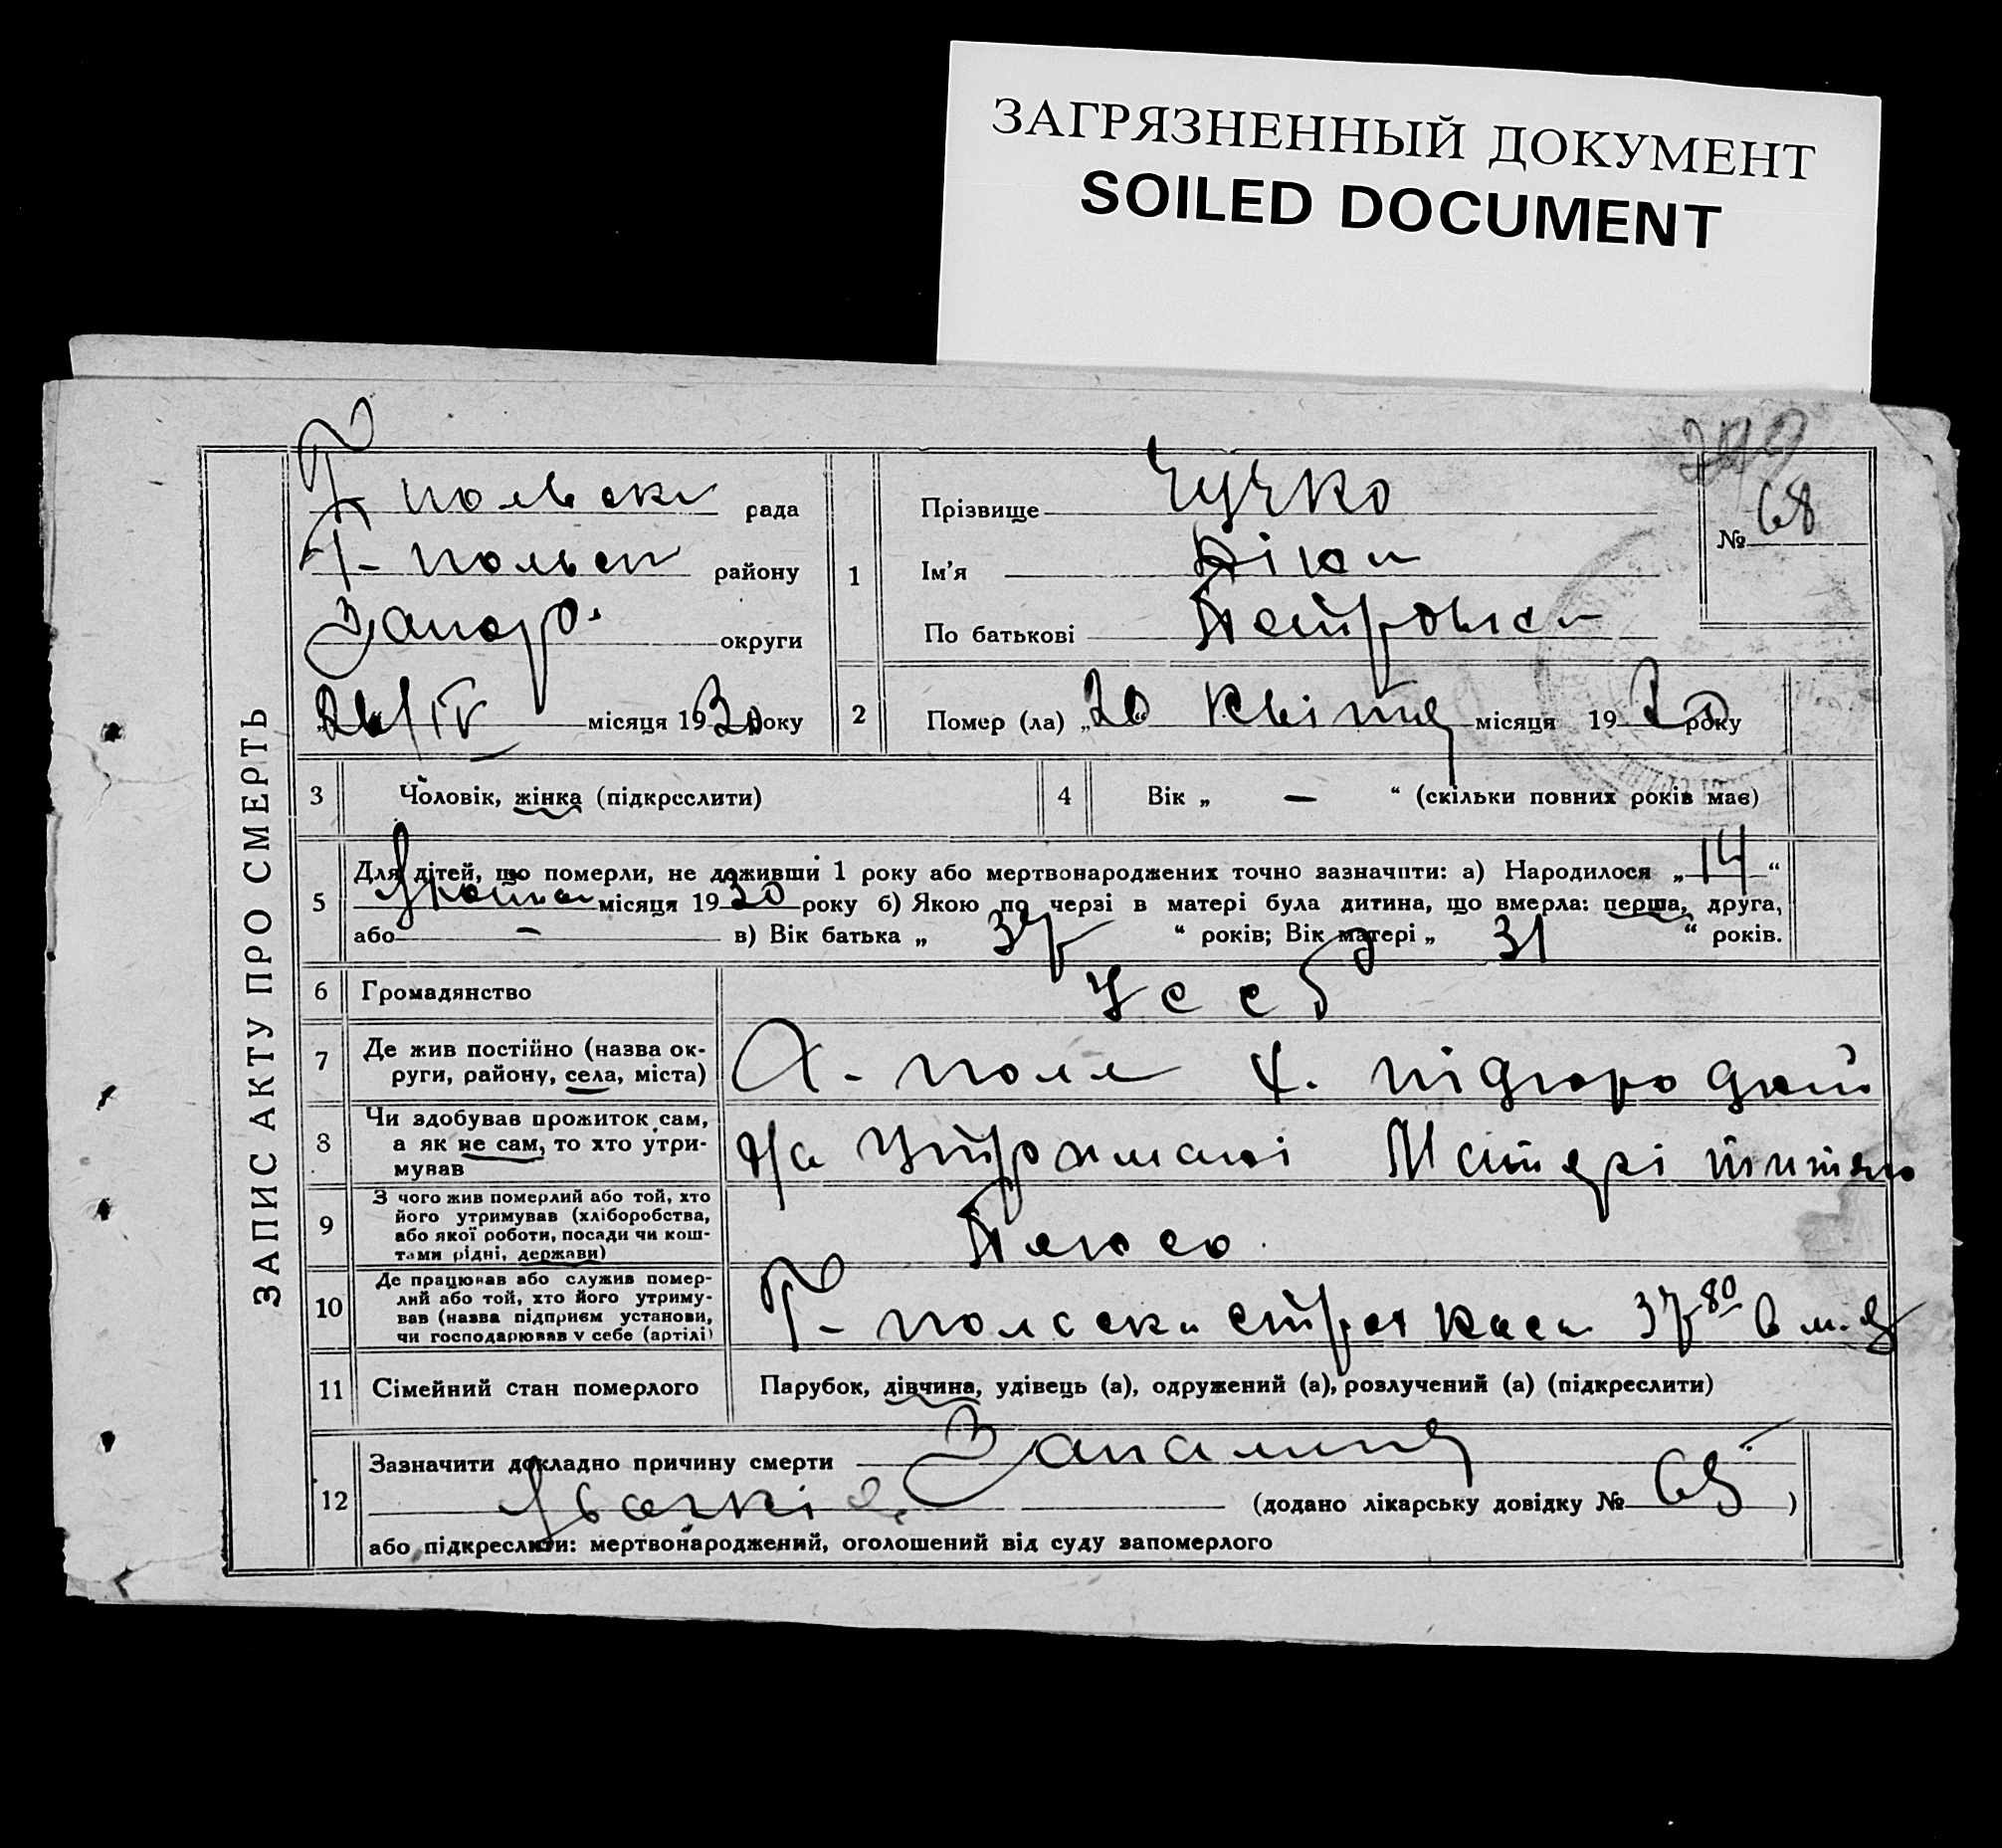 ЗАГРЯЗНЕННЫЙ ДОКУМЕНТ
SOILED DOCUMENT
ЗАПИС АКТУ ПРО СМЕРТЬ
Г польськ рада
Г- польськ району
Запор. округи
місяця 1930 року
1
Прізвище Чучко
Ім'я Ніна
По батькові Петровна
№ 68
2
Помер (ла) „20“ квітня місяця 1930 року
3
Чоловік, жінка (підкреслити)
4
Вік „ — “ (скільки повних років має)
5
Для дітей, що померли, не доживши 1 року або мертвонароджених точно зазначити: а) Народилося „14“
місяця 1930 року б) Якою по черзі в матері була дитина, що вмерла: перша, друга,
або — в) Вік батька „ 37 “ років; Вік матері „ 31 “ років.
6
Громадянство
УССР
7
Де жив постійно (назва ок-
руги, району, села, міста)
поле
8
Чи здобував прожиток сам,
а як не сам, то хто утри-
мував
На утриманні Матері
9
З чого жив померлий або той, хто
його утримував (хліборобства,
або якої роботи, посади чи кош-
тами рідні, держави)
Пенсію
10
Де працював або служив помер-
лий або той, хто його утриму-
вав (назва підприєм установи,
чи господарював у себе (артілі)
Г- польськ страхкаса 37 80 в м-ц
11
Сімейний стан померлого
Парубок, дівчина, удівець (а), одружений (а), розлучений (а) (підкреслити)
12
Зазначити докладно причину смерти Запалення
(додано лікарську довідку № 65)
або підкреслити: мертвонароджений, оголошений від суду запомерлого